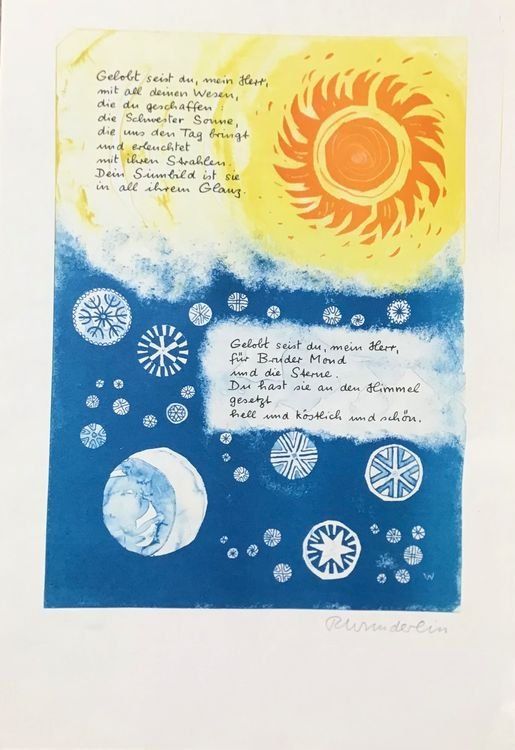 Gelobt seist du, mein Herr,
mit all deinen Wesen,
die du geschaffen:
die Schwester Sonne,
die uns den Tag bringt
und erleuchtet
mit ihren Strahlen.
Dein Sinnbild ist sie
in all ihrem Glanz.
Gelobt seist du, mein Herr,
für Bruder Mond
und die Sterne.
Du hast sie an den Himmel
gesetzt
hell und köstlich und schön.
W
RWunderlin